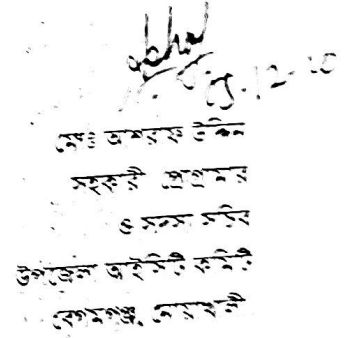 ০৪.১২.১০
মোঃ আশরাফ উদ্দিন
সহকারী প্রোগ্রামার
ও সদস্য সচিব
উপজেলা আইসিটি কমিটি
বেগমগঞ্জ, নোয়াখালী